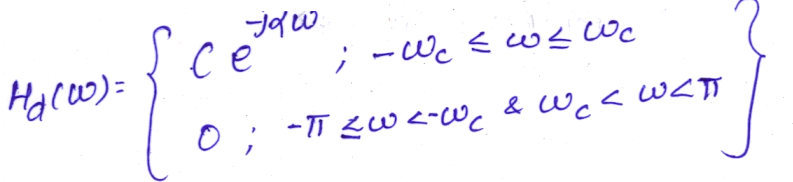 H_d(ω) = { C e^{-jαω} ; -ω_c ≤ ω ≤ ω_c
0 ; -π ≤ ω < -ω_c & ω_c < ω < π }